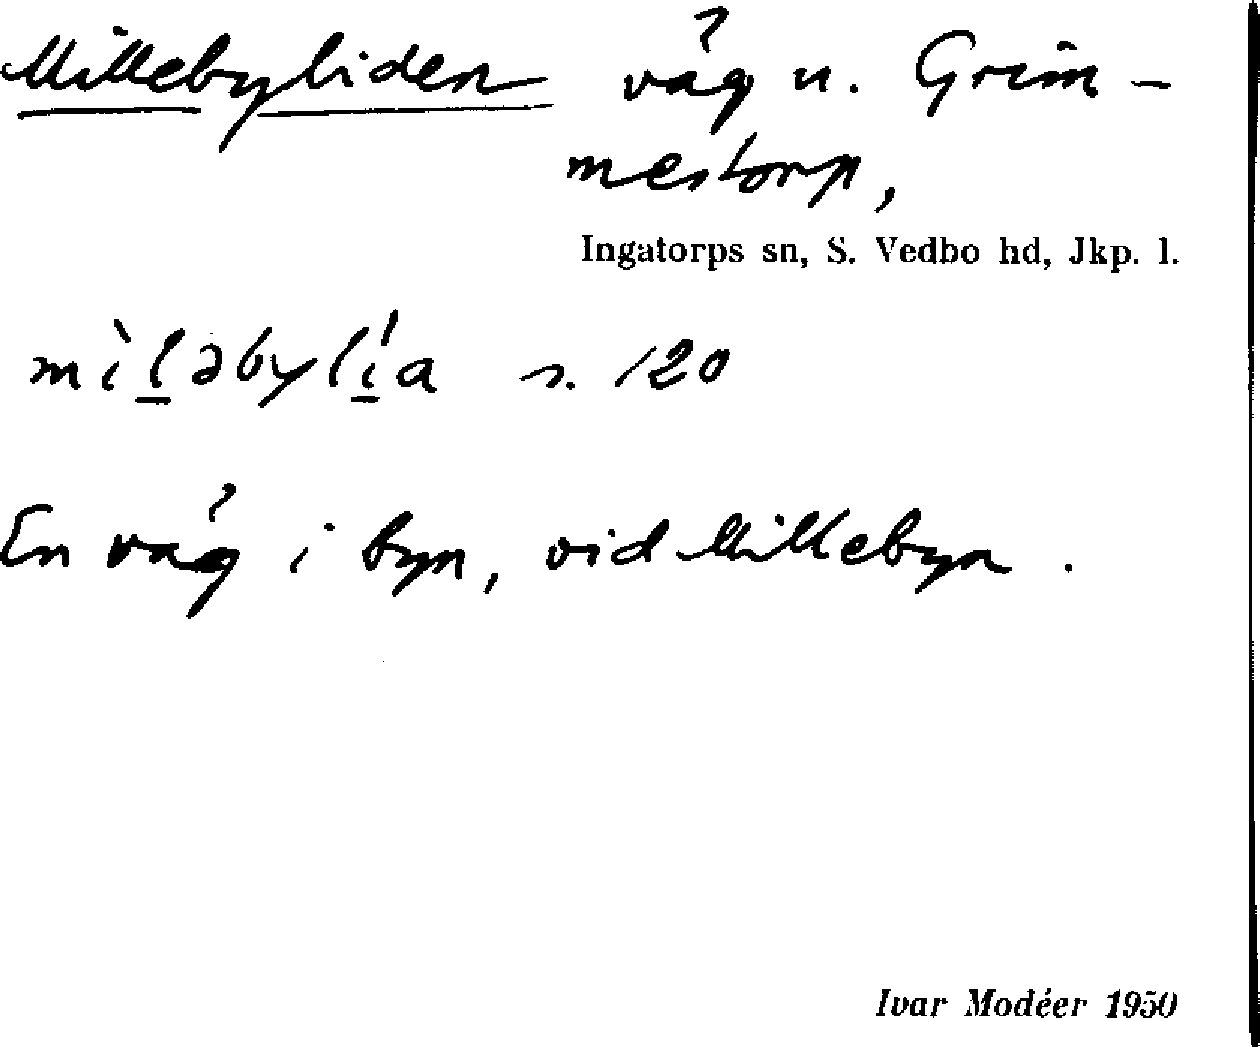 Millebyliden väg u. Grim-
mestorp,
Ingatorps sn, S. Vedbo hd, Jkp. l.
mìlәbylía s. 120
En väg i byn, vid Millebyn.
Ivar Modéer 1950